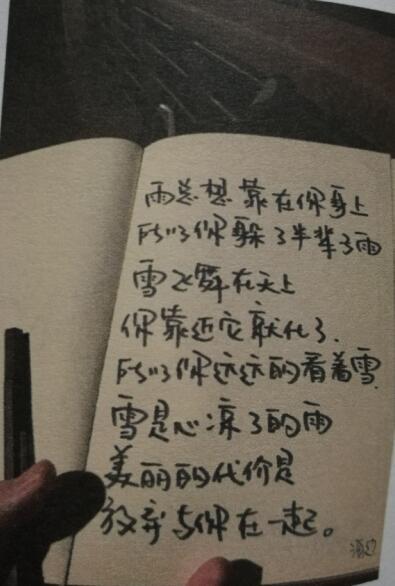 雨总想靠在你身上
所以你躲了半辈子雨
雪飞舞在天上
你靠近它就化了.
所以你远远的看着雪.
雪是心凉了的雨
美丽的代价是
放弃与你在一起。